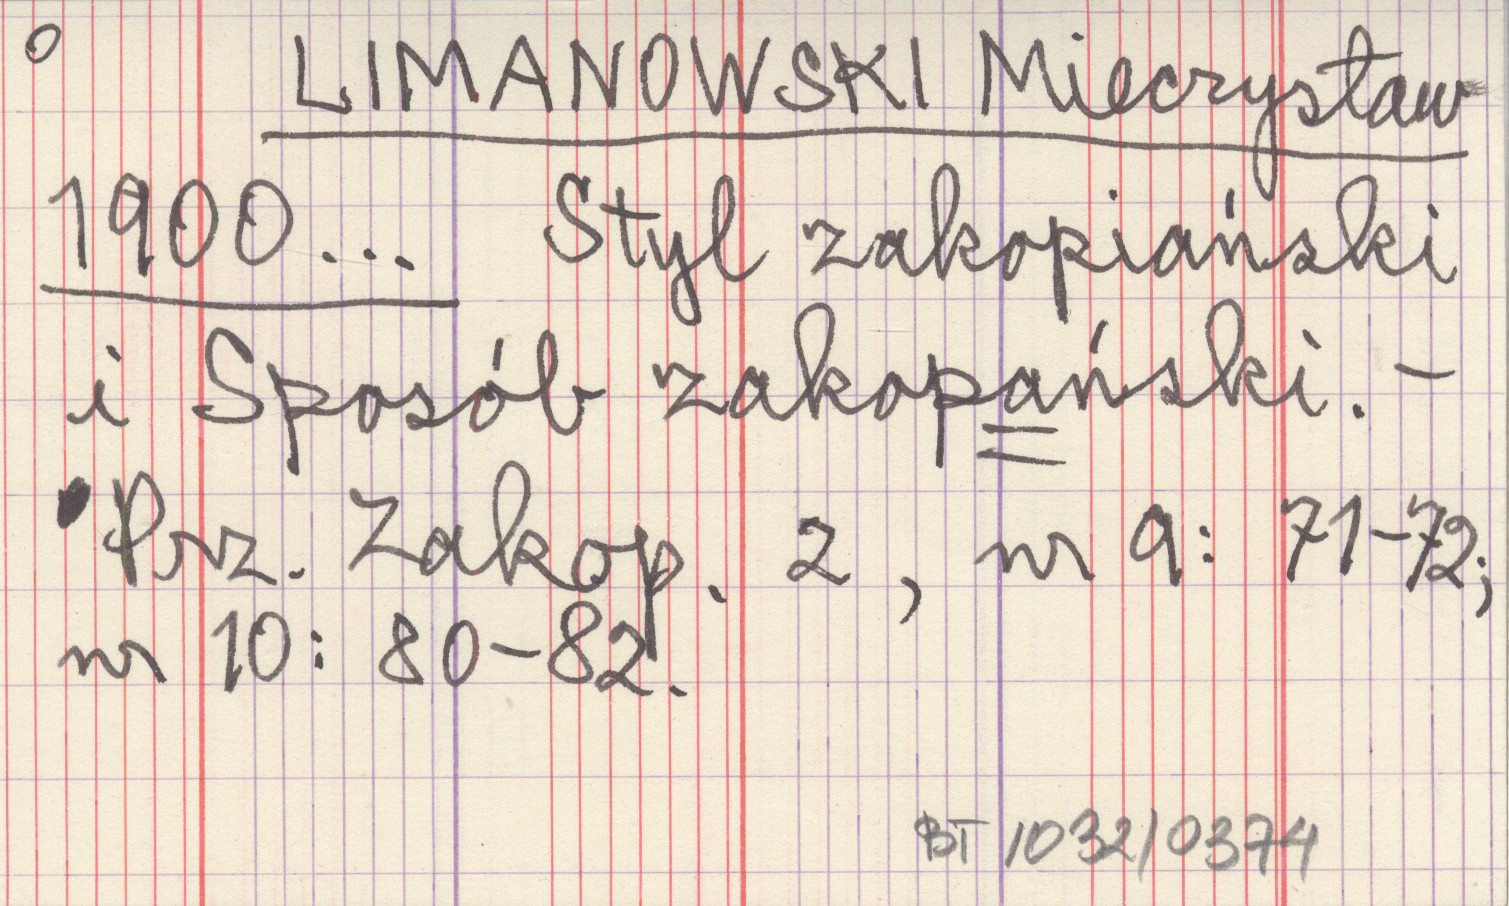 o LIMANOWSKI Mieczysław
1900... Styl zakopiański
i Sposób zakopański. -
Prz. Zakop. 2, nr 9: 71-72;
nr 10: 80-82.
BT 1032/0374